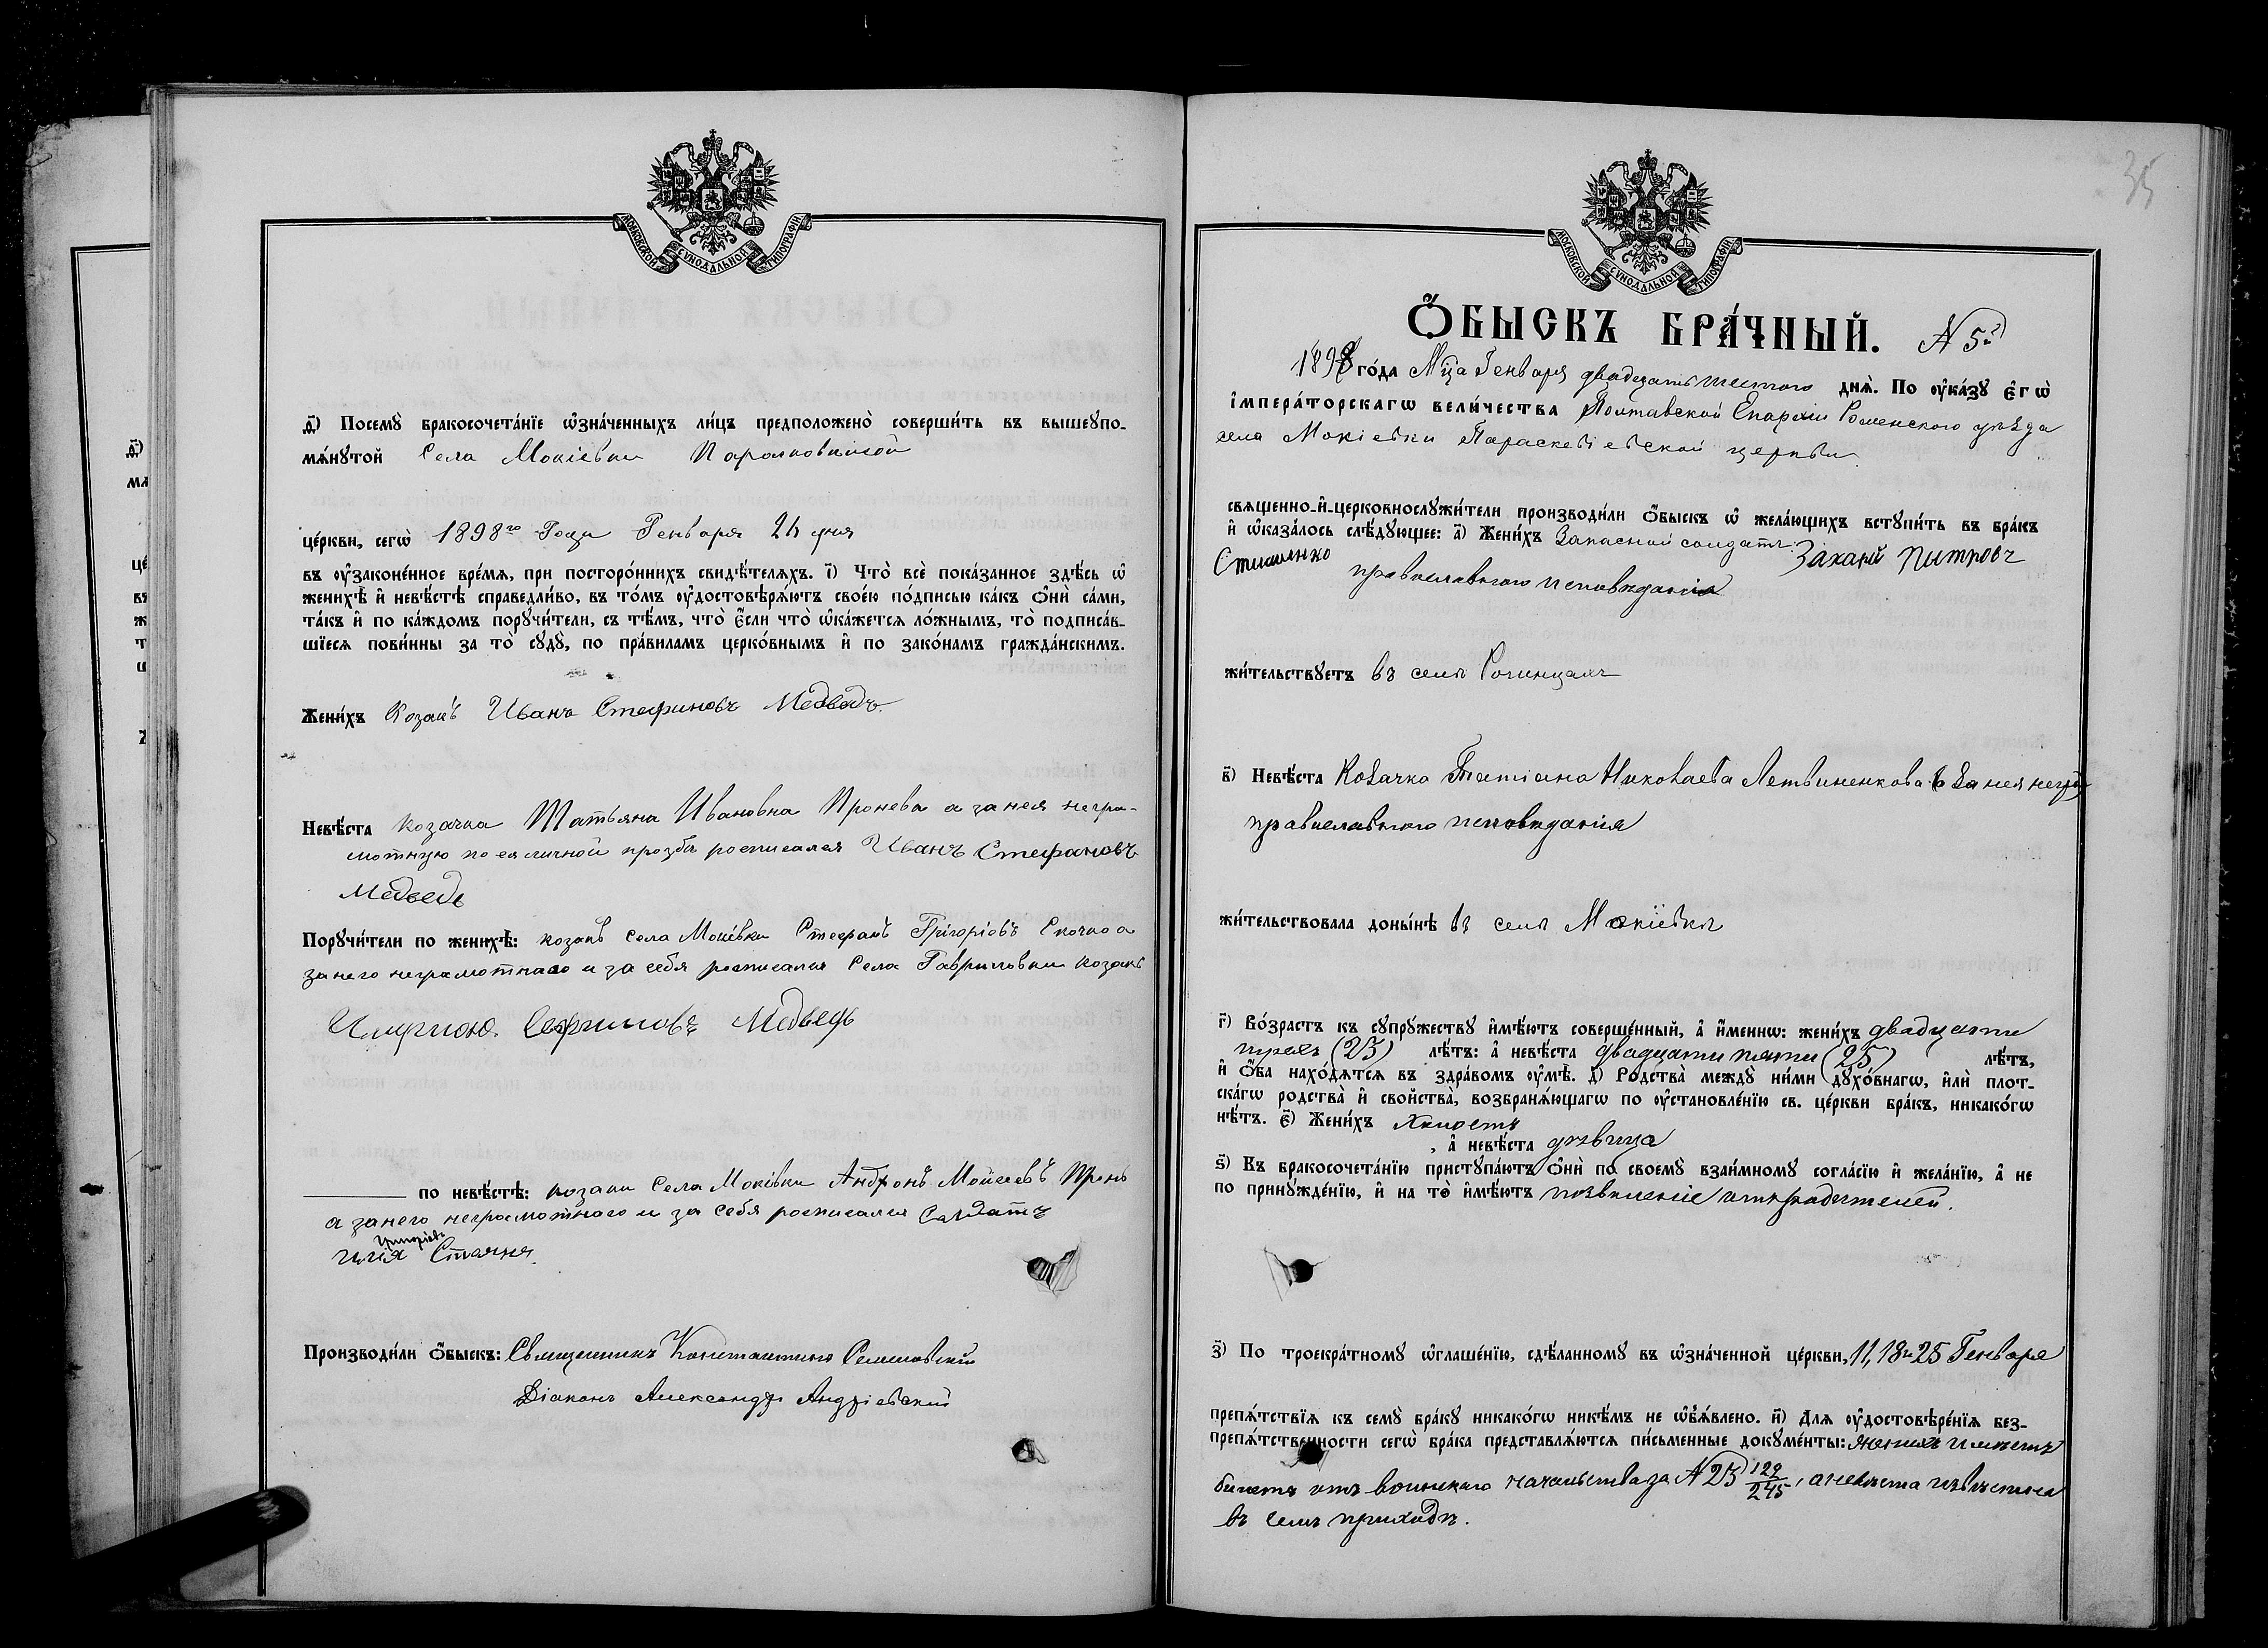 МОСКОВСКОЙ СѴНОДАЛЬНОЙ ТИПОГРАФІИ
ѳ҃) Посемꙋ̀ бракосочета́нїе ѡ҆зна́ченныхъ ли́цъ предположено̀ соверши́ть въ вышеꙋпо-
мѧ́нꙋтой Села Мокіевки
це́ркви, сегѡ̀ 1898го Года Генваря 26 дня
въ ᲂу҆законе́нное вре́мѧ, при посторо́ннихъ свидѣ́телѧхъ. і҃) Что̀ всѐ пока́занное здѣ́сь ѡ҆
женихѣ̀ и҆ невѣ́стѣ справедли́во, въ то́мъ ᲂу҆достовѣрѧ́ютъ свое́ю по́дписью ка́къ ѻ҆нѝ са́ми,
та́къ и҆ по ка́ждомъ порꙋчи́тели, съ тѣ́мъ, что̀ є҆́сли что̀ ѡ҆ка́жетсѧ ло́жнымъ, то̀ подписа́в-
шїесѧ пови́нны за то̀ сꙋдꙋ̀, по пра́виламъ церко́внымъ и҆ по зако́намъ гражда́нскимъ.
Жени́хъ Козакъ Иванъ Стефановъ Медведъ.
Невѣ́ста Козачка Татьяна Ивановна Пронева а за нея негра-
мотную по ея личной прозбѣ росписался Иванъ Стефановъ
Медведь
Порꙋчи́тели по женихѣ̀: козакъ Села Мокіевки Стефанъ Григоріовъ а
за него неграмотнаго и за себя росписался Села Гавриловки козакъ
Медведь
по невѣ́стѣ: козаки Села Моківки Андронъ Мойсеевъ Пронь
а за него неграмотнаго и за себя росписался Салдатъ
Григоріевъ
Илія
Производи́ли ѻ҆́быскъ: Священникъ Константинъ
Діаконъ Александръ Андріевский
35
МОСКОВСКОЙ СѴНОДАЛЬНОЙ ТИПОГРАФІИ
Ѻ҆́БЫСКЪ БРА́ЧНЫЙ. N 5й
1898 го́да М҃ца Генваря двадцать шестого днѧ̀. По ᲂу҆ка́зꙋ є҆гѡ̀
і҆мпера́торскагѡ вели́чества Полтавской Епархіи Роменского уѣзда
села Мокіевки Параскевіевской церкви
свѧщенно-и҆-церковнослꙋжи́тели производи́ли ѻ҆́быскъ ѡ҆ жела́ющихъ встꙋпи́ть въ бра́къ
и҆ ѡ҆каза́лось слѣ́дꙋющее: а҃) Жени́хъ Запасной солдатъ Захарій Питровъ
православного исповѣданія
жи́тельствꙋетъ въ селѣ
в҃) Невѣ́ста Козачка Татіана Николаева Летвиненкова
православного исповѣданія
жи́тельствовала доны́нѣ въ селѣ Мокіевкѣ
г҃) Во́зрастъ къ сꙋпрꙋ́жествꙋ и҆мѣ́ютъ соверше́нный, а҆ и҆́меннѡ: жени́хъ двадцати
трехъ (23) лѣ́тъ: а҆ невѣ́ста двадцати пяти (25) лѣ́тъ,
и҆ ѻ҆́ба нахо́дѧтсѧ въ здра́вомъ ᲂу҆мѣ̀. д҃) Ро́дства̀ междꙋ̀ ни́ми дꙋхо́внагѡ, и҆лѝ плот-
ска́гѡ родства̀ и҆ сво́йства̀, возбранѧ́ющагѡ по ᲂу҆становле́нїю св. це́ркви бра́къ, никако́гѡ
нѣ́тъ. є҃) Жени́хъ холостъ
, а҆ невѣ́ста дѣвица
ѕ҃) Къ бракосочета́нїю пристꙋпа́ютъ ѻ҆нѝ по своемꙋ̀ взаи́мномꙋ согла́сїю и҆ жела́нїю, а҆ не
по принꙋжде́нїю, и҆ на то̀ и҆мѣ́ютъ позволеніе отъ родителей.
з҃) По троекра́тномꙋ ѡ҆глаше́нїю, сдѣ́ланномꙋ въ ѡ҆зна́ченной це́ркви, 11, 18 и 25 Генваря
препѧ́тствїѧ къ семꙋ̀ бра́кꙋ никако́гѡ никѣ́мъ не ѡ҆б̾ѧ́влено. и҃) Длѧ ᲂу҆достовѣре́нїѧ без-
препѧ́тственности сегѡ̀ бра́ка представлѧ́ютсѧ пи́сьменные докꙋме́нты: женихъ имѣетъ
билетъ отъ воинскаго начальства за N 23 122/245, а невѣста извѣстна
въ семъ приходѣ.